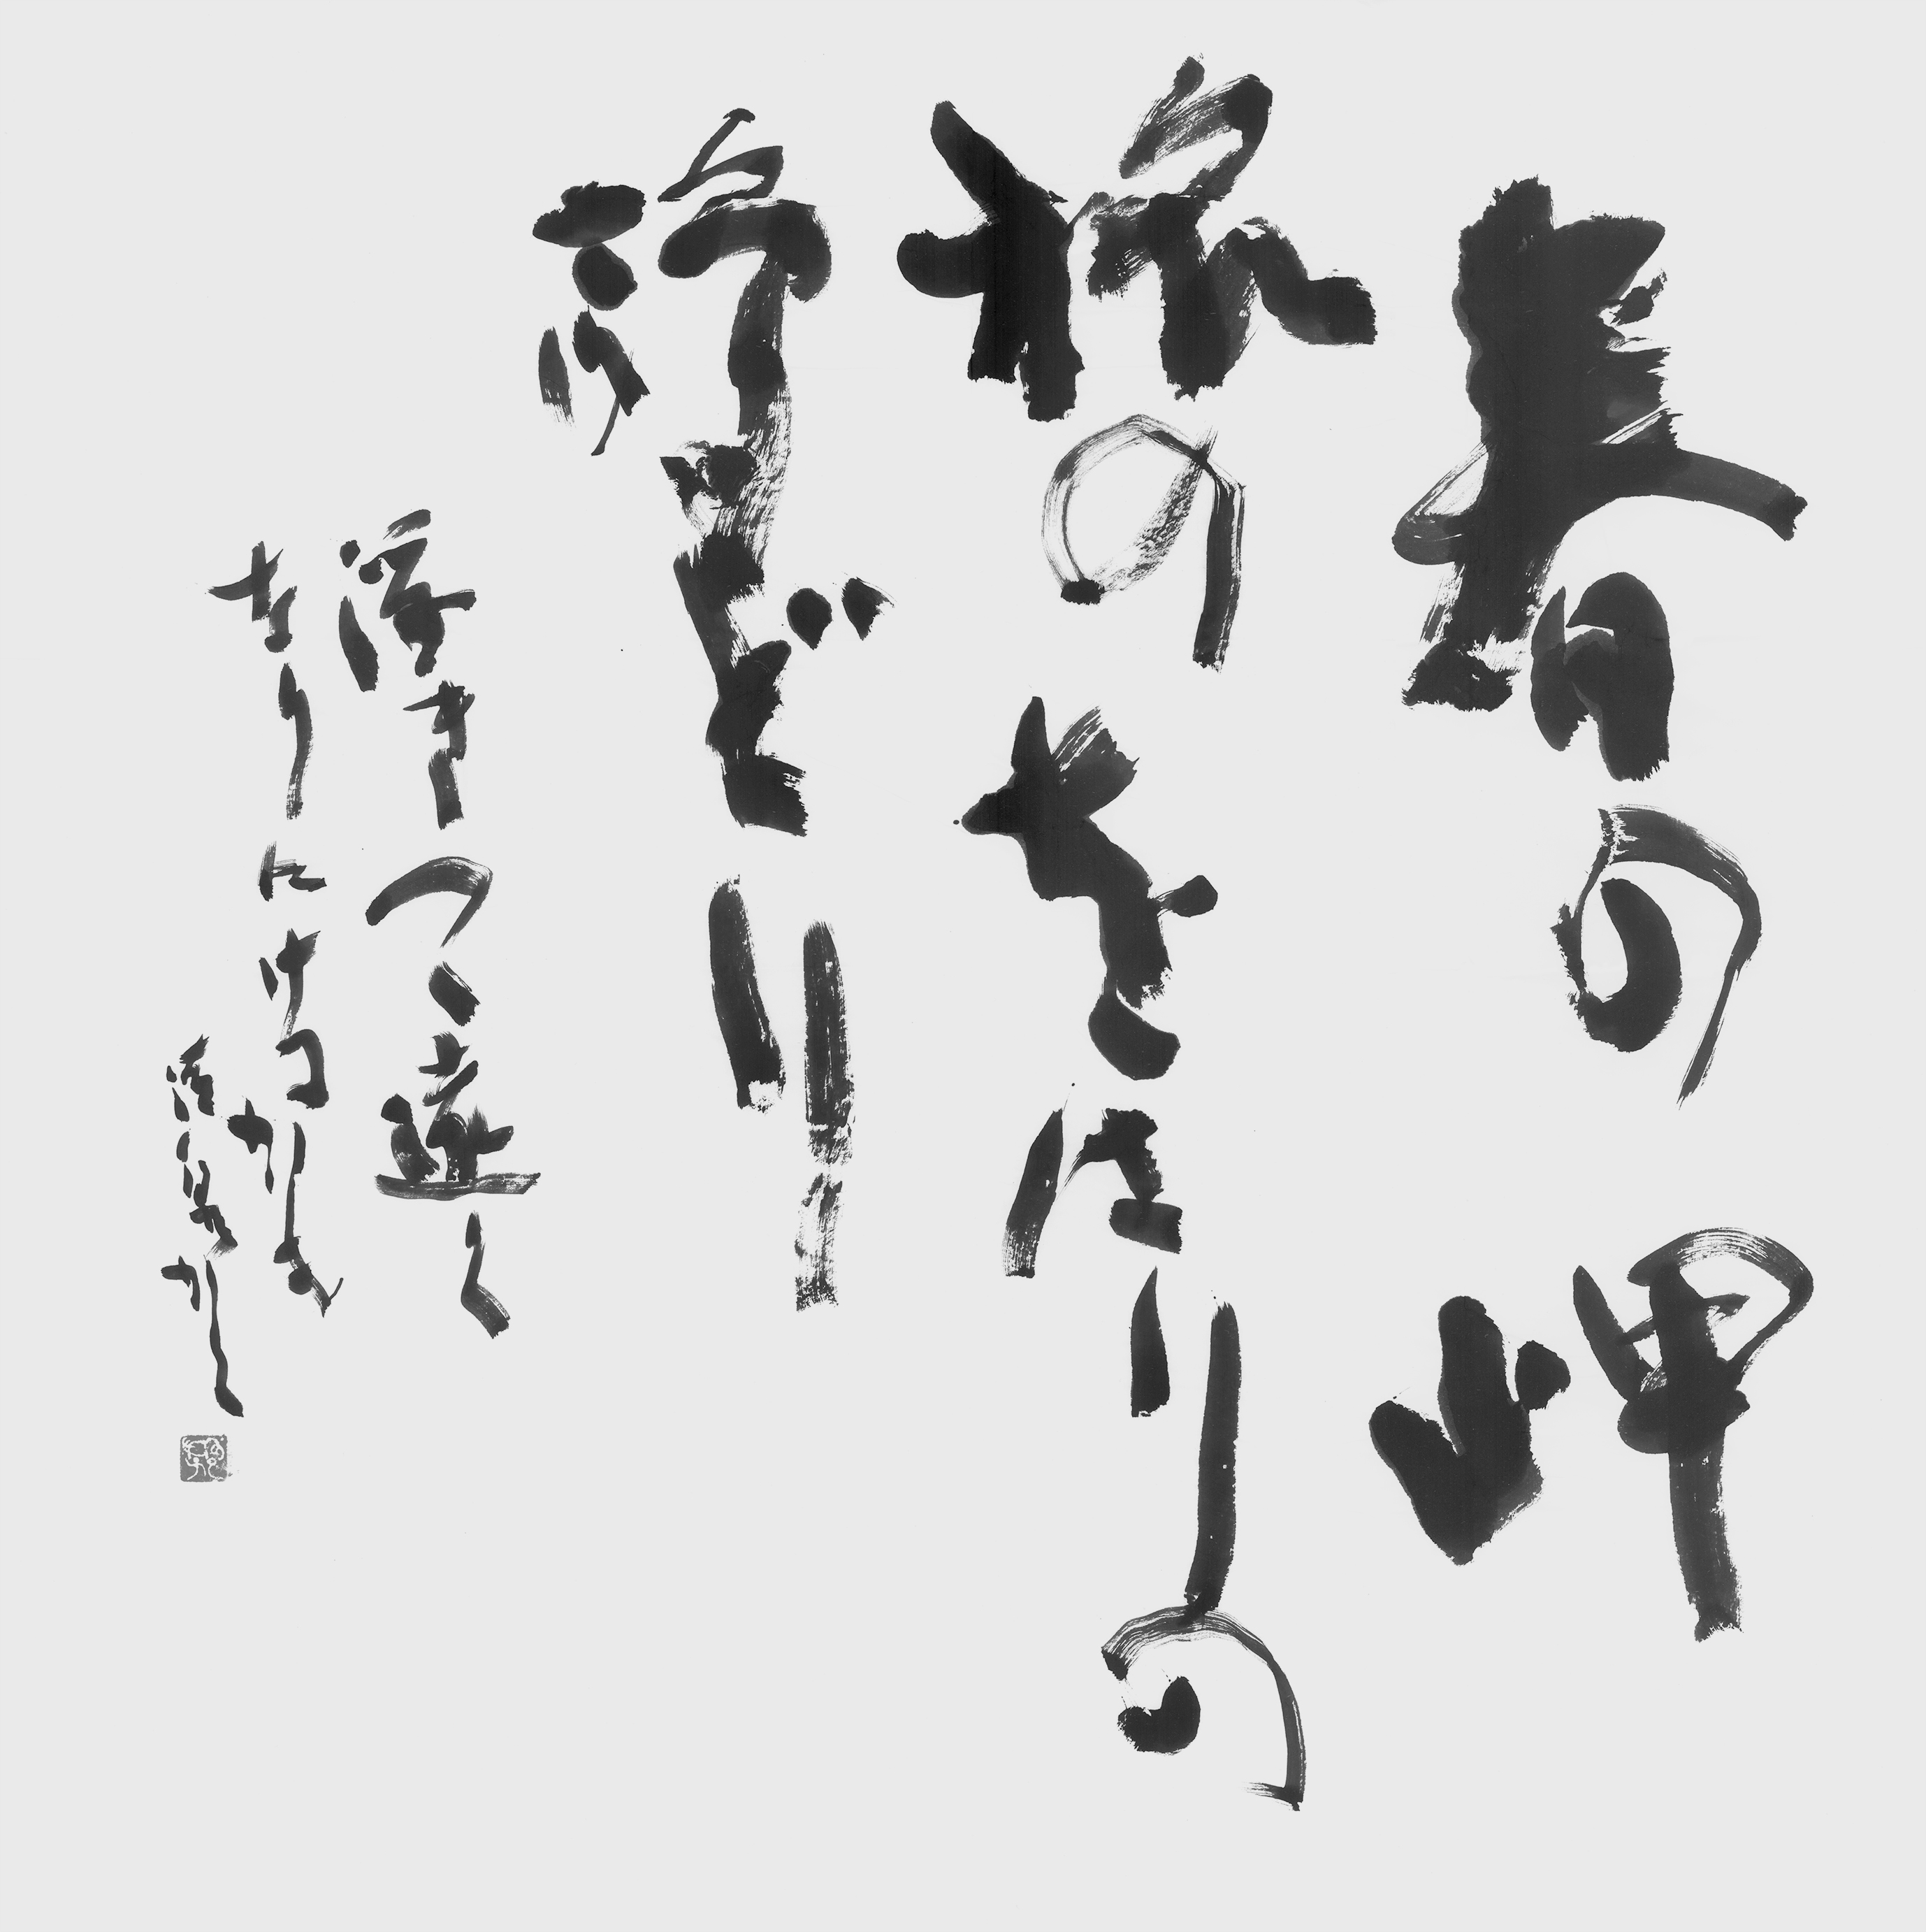 春の岬
旅のをはりの
鴎どり
浮きつゝ遠く
なりにけるかも